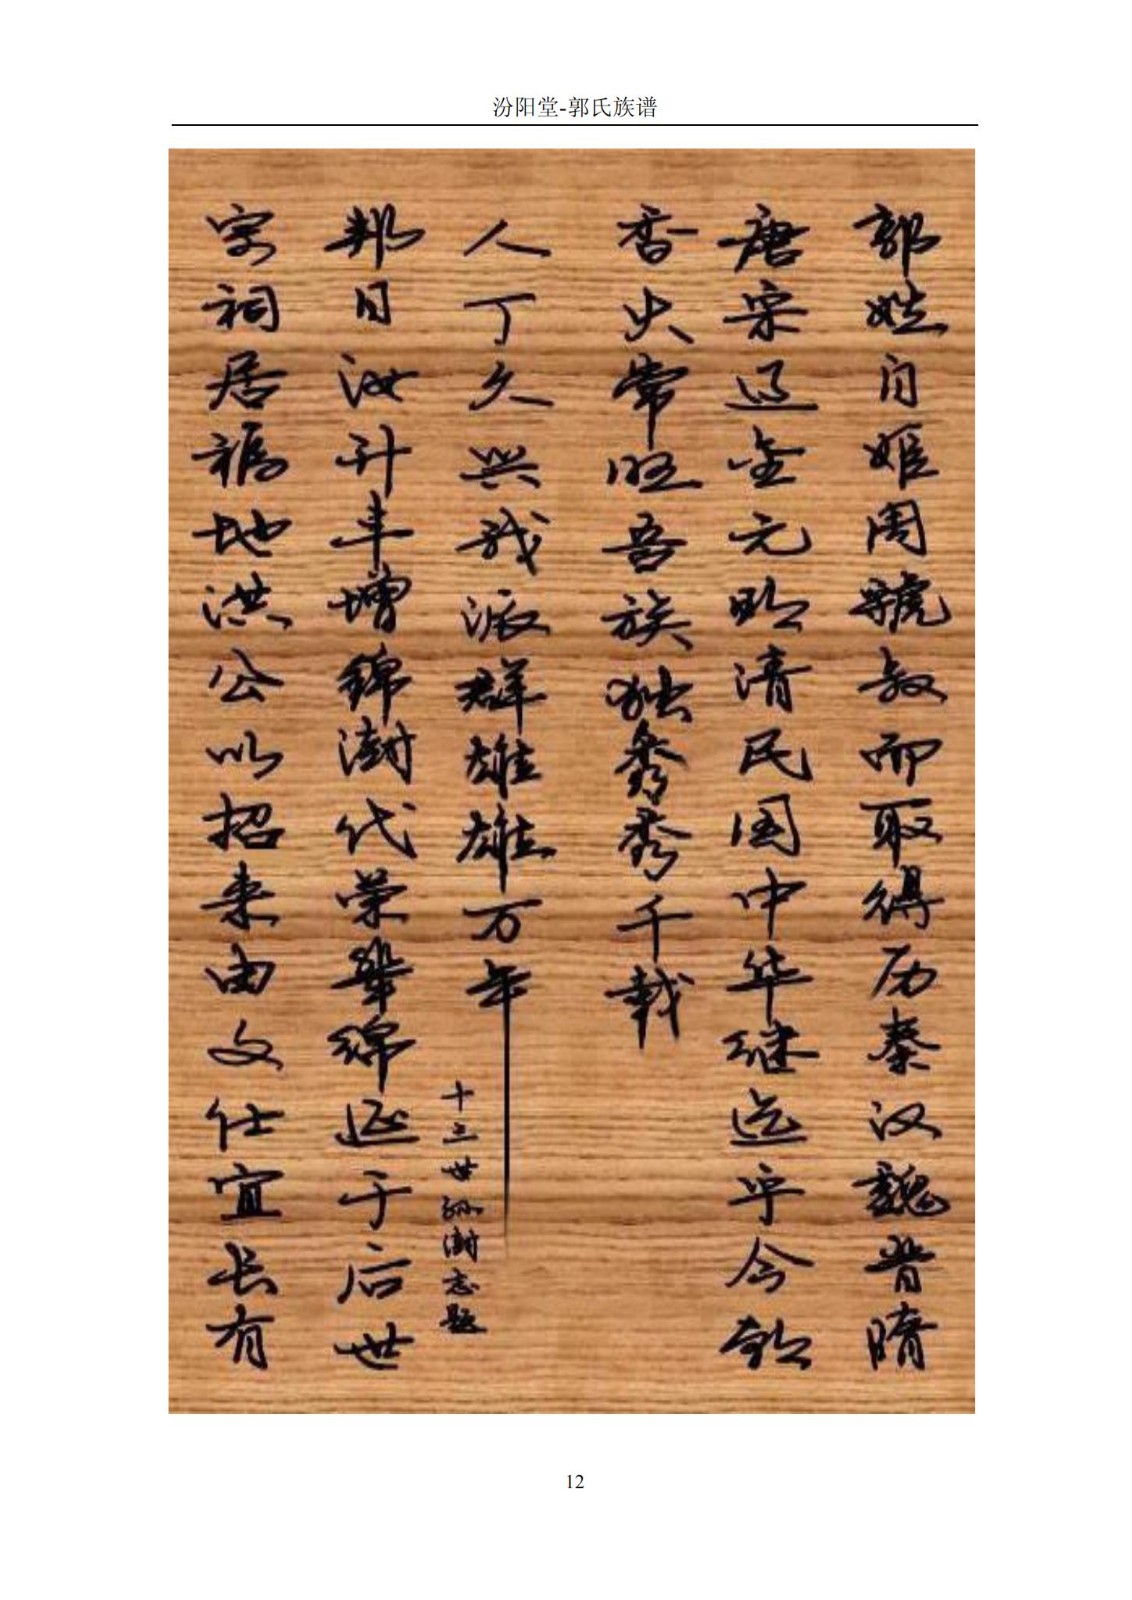 汾阳堂-郭氏族谱
郭姓自姬周虢叔而取得历秦汉魏晋隋
唐宋辽金元明清民国中华继迄乎今
香火常旺吾族独秀秀千载
宗祠居福地洪公以招来由文仕宜长有
邦日汝升丰增锦澍代荣辈绵延于后世
人丁久兴我派群雄雄万年
十三世孙澍志题
12